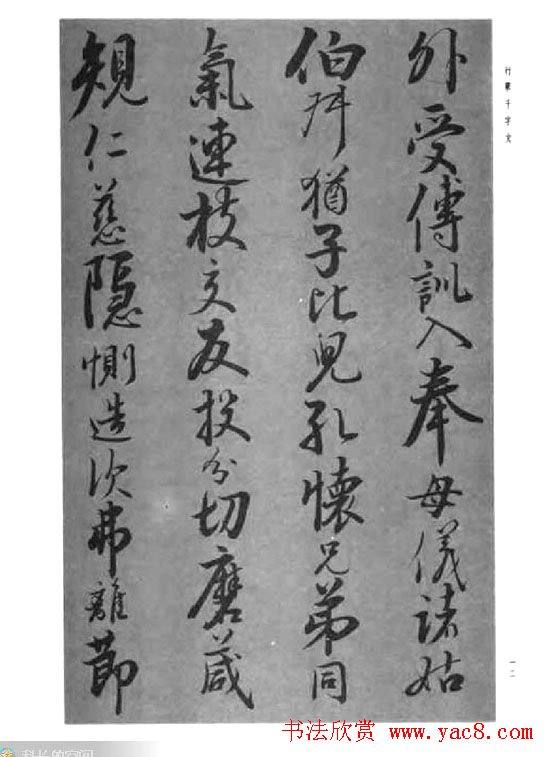 行書千字文
外受傅訓入奉母儀諸姑
伯叔猶子比兒孔懷兄弟同
氣連枝交友投分切磨箴
規仁慈隱惻造次弗離節
一二
书法欣赏 www.yac8.com
科长的空间